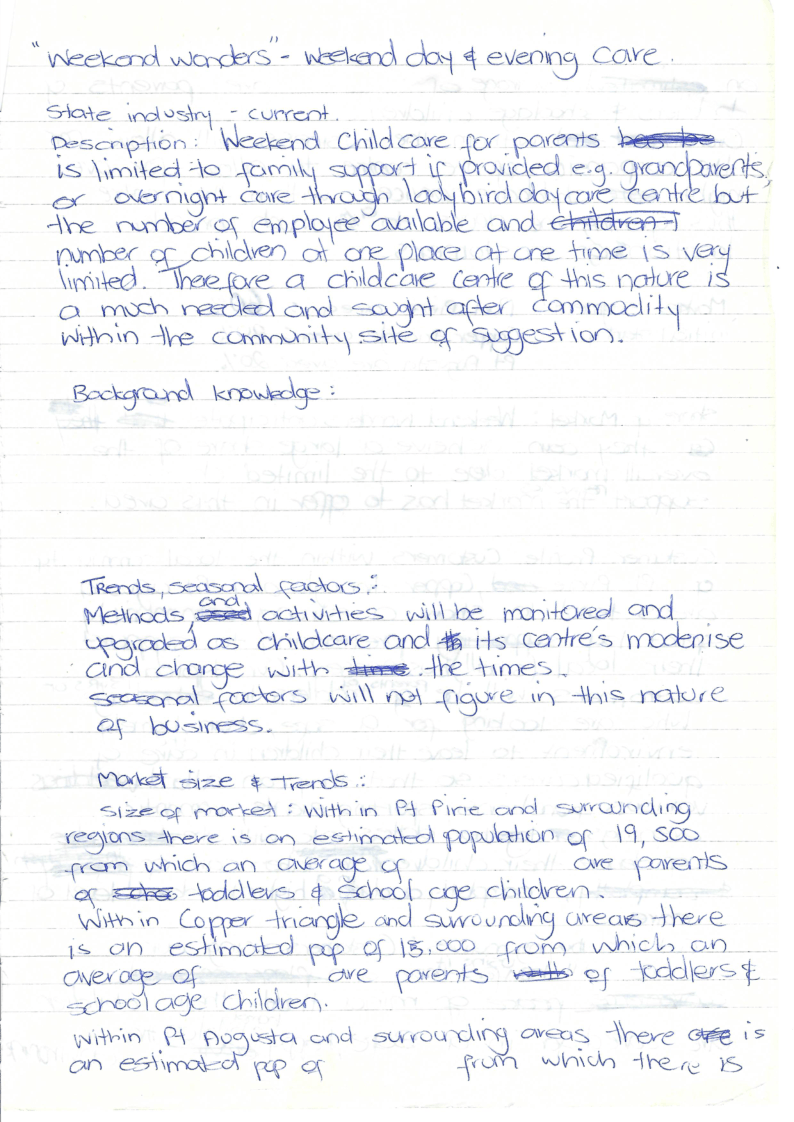 "Weekend wonders" - weekend day & evening care.
State industry - current.
Description: Weekend Childcare for parents
is limited to family support if provided e.g. grandparents,
or overnight care through ladybird daycare centre but
the number of employee available and children
number of children at one place at one time is very
limited. Therefore a childcare centre of this nature is
a much needed and sought after commodity
within the community site of suggestion.
Background knowledge:
Trends, seasonal factors:
and
Methods, activities will be monitored and
upgraded as childcare and its centre's modenise
and change with time the times.
seasonal factors will not figure in this nature
of business.
Market size & Trends:
size of market: within Pt Pirie and surrounding
regions there is an estimated population of 19,500
from which an average of are parents
of toddlers & school age children.
Within Copper triangle and surrounding areas there
is an estimated pop of 15,000 from which an
average of are parents of toddlers &
school age children.
within Pt Augusta and surrounding areas there are is
an estimated pop of from which there is